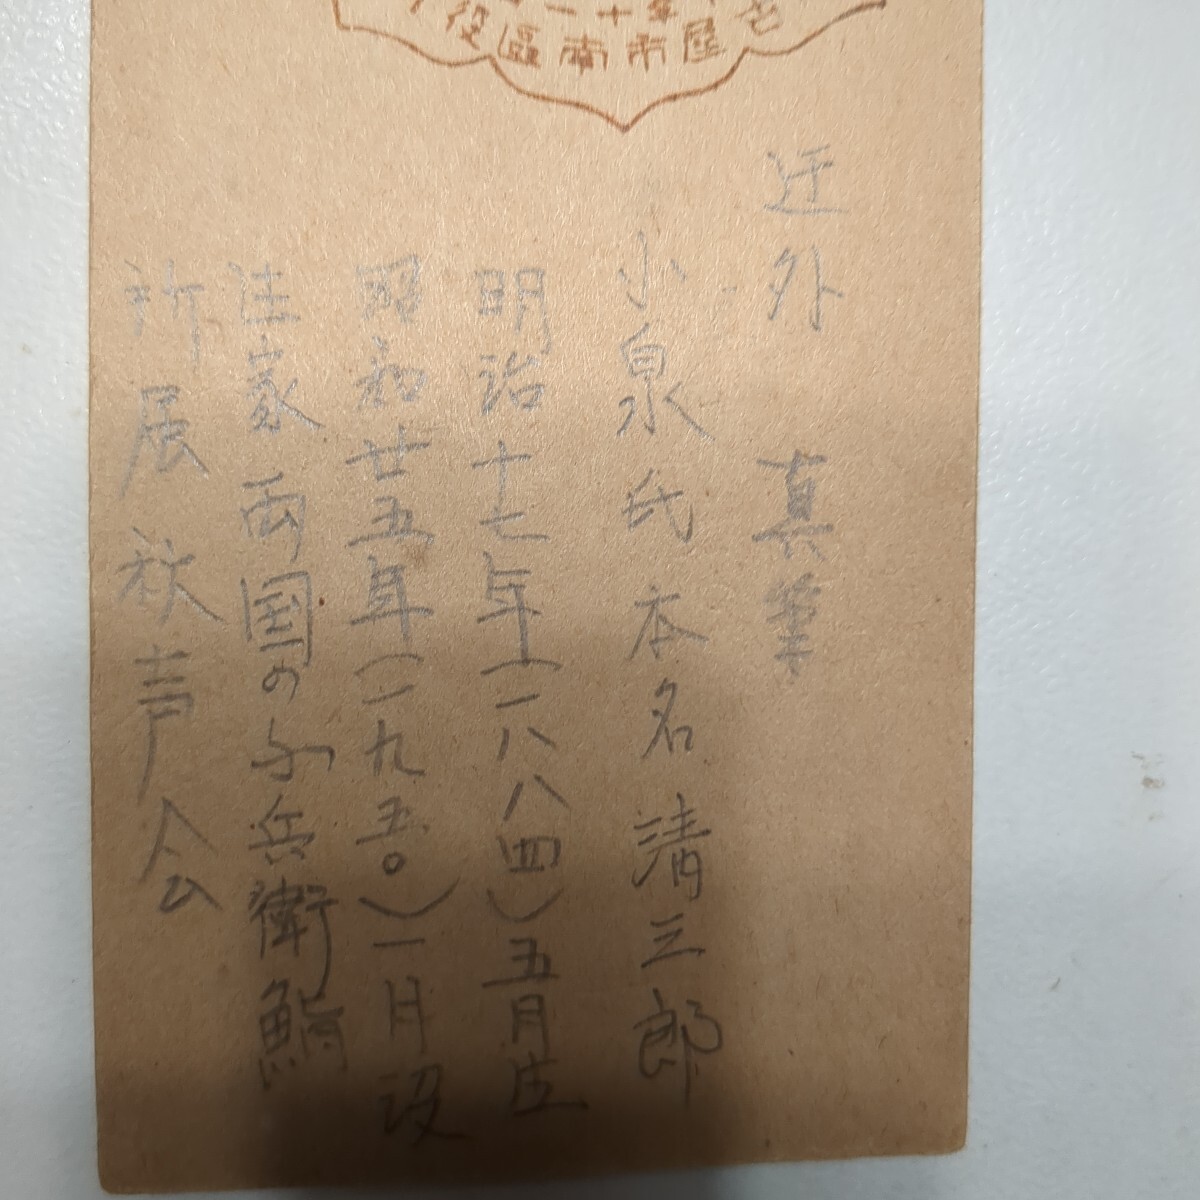 屋市南區役
迂外 真筆
小泉氏 本名 清三郎
明治十七年(一八八四)五月生
昭和廿五年(一九五〇)一月没
生家 両国の与兵衛鮨
所属 秋声会